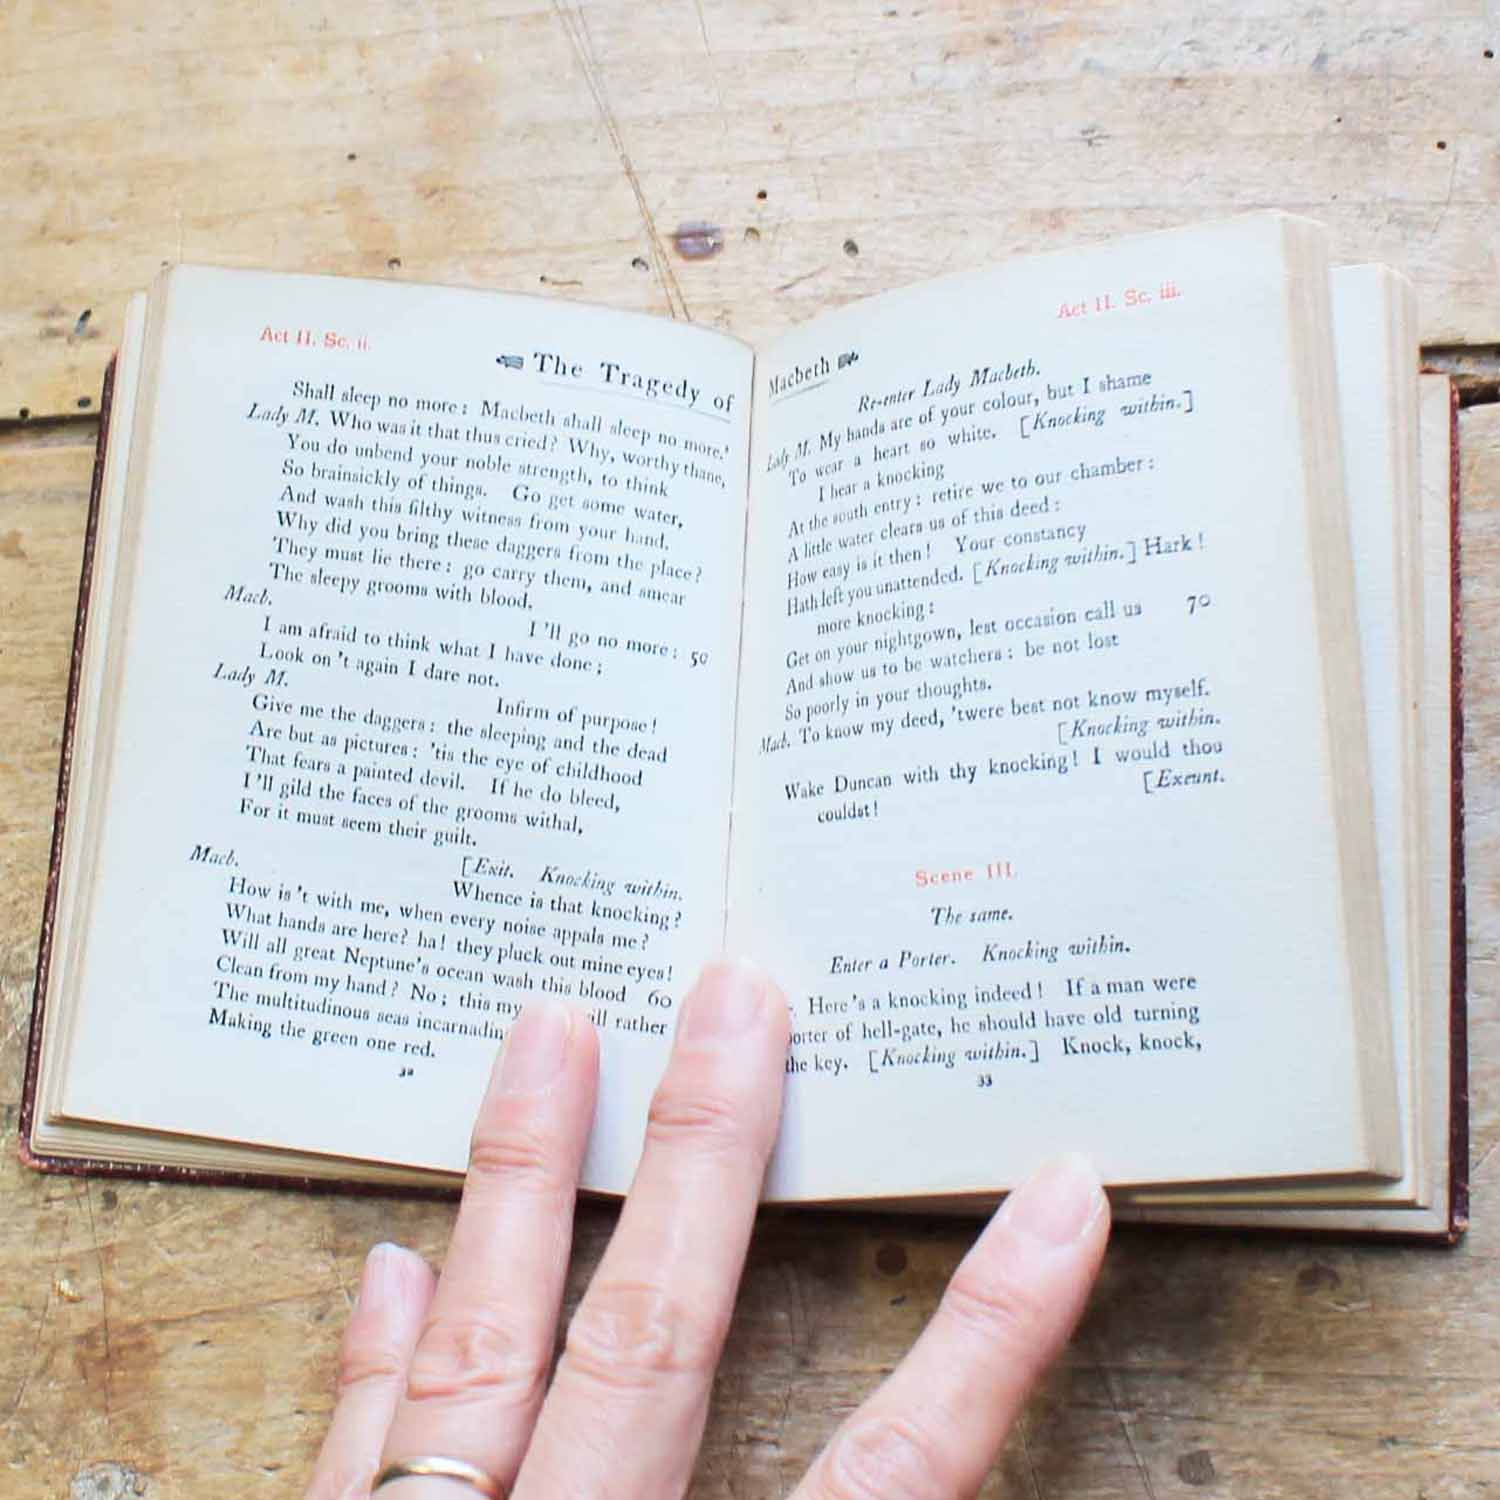 Act II. Sc. ii.
The Tragedy of
Shall sleep no more: Macbeth shall sleep no more.'
Lady M. Who was it that thus cried? Why, worthy thane,
You do unbend your noble strength, to think
So brainsickly of things. Go get some water,
And wash this filthy witness from your hand.
Why did you bring these daggers from the place?
They must lie there: go carry them, and smear
The sleepy grooms with blood.
Macb.
I 'll go no more: 50
I am afraid to think what I have done;
Look on 't again I dare not.
Lady M.
Infirm of purpose!
Give me the daggers: the sleeping and the dead
Are but as pictures: 'tis the eye of childhood
That fears a painted devil. If he do bleed,
I 'll gild the faces of the grooms withal,
For it must seem their guilt.
[Exit. Knocking within.
Macb.
Whence is that knocking?
How is 't with me, when every noise appals me?
What hands are here? ha! they pluck out mine eyes!
Will all great Neptune's ocean wash this blood 60
Clean from my hand? No; this my will rather
The multitudinous seas incarnadin
Making the green one red.
32
Act II. Sc. iii.
Macbeth
Re-enter Lady Macbeth.
Lady M. My hands are of your colour, but I shame
To wear a heart so white. [Knocking within.]
I hear a knocking
At the south entry: retire we to our chamber:
A little water clears us of this deed:
How easy is it then! Your constancy
Hath left you unattended. [Knocking within.] Hark!
more knocking:
Get on your nightgown, lest occasion call us 70
And show us to be watchers: be not lost
So poorly in your thoughts.
Macb. To know my deed, 'twere best not know myself.
[Knocking within.
Wake Duncan with thy knocking! I would thou
couldst!
[Exeunt.
Scene III.
The same.
Enter a Porter. Knocking within.
Here's a knocking indeed! If a man were
porter of hell-gate, he should have old turning
the key. [Knocking within.] Knock, knock,
33